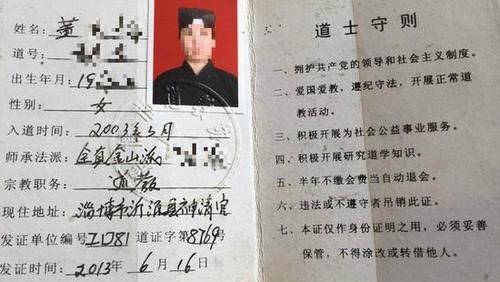 姓名: 董
道号:
出生年月: 19
性别: 女
入道时间: 2003年5月
师承法派: 全真金山派
宗教职务: 道教
现住地址: 淄博市沂源县神清宫
发证单位编号 道证字第8769号
发证时间: 2013年 6月16日
道士守则
一、拥护共产党的领导和社会主义制度。
二、爱国爱教,遵纪守法,开展正常道
教活动。
三、积极开展为社会公益事业服务。
四、积极开展研究道学知识。
五、半年不缴会费当自动退会。
六、违法或不遵守者吊销此证。
七、本证仅作身份证明之用,必须妥善
保管,不得涂改或转借他人。